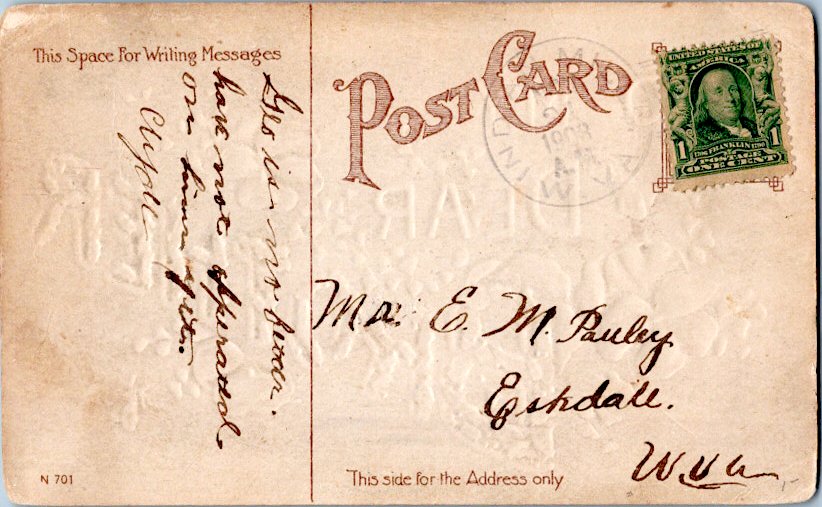 This Space For Writing Messages
Geo is no better.
have not operated
on him yet.
Clyde
POST CARD
1908
UNITED STATES OF
AMERICA
1706 FRANKLIN 1790
1 1
POSTAGE
ONE CENT
Mr. E. M. Pauley
Eskdale.
W.Va
N 701
This side for the Address only